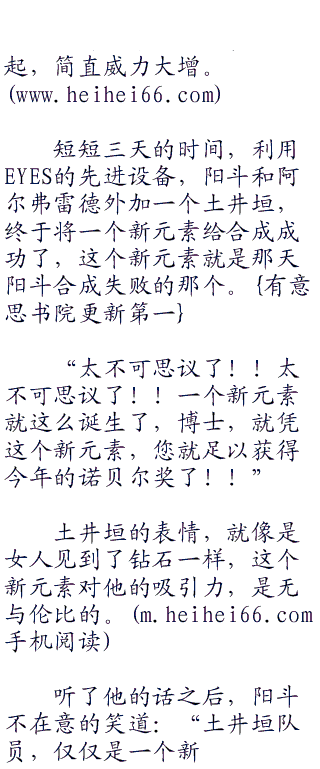 起，简直威力大增。
(www.heihei66.com)
短短三天的时间，利用
EYES的先进设备，阳斗和阿
尔弗雷德外加一个土井垣，
终于将一个新元素给合成成
功了，这个新元素就是那天
阳斗合成失败的那个。{有意
思书院更新第一}
“太不可思议了！！太
不可思议了！！一个新元素
就这么诞生了，博士，就凭
这个新元素，您就足以获得
今年的诺贝尔奖了！！”
土井垣的表情，就像是
女人见到了钻石一样，这个
新元素对他的吸引力，是无
与伦比的。(m.heihei66.com
手机阅读)
听了他的话之后，阳斗
不在意的笑道：“土井垣队
员，仅仅是一个新